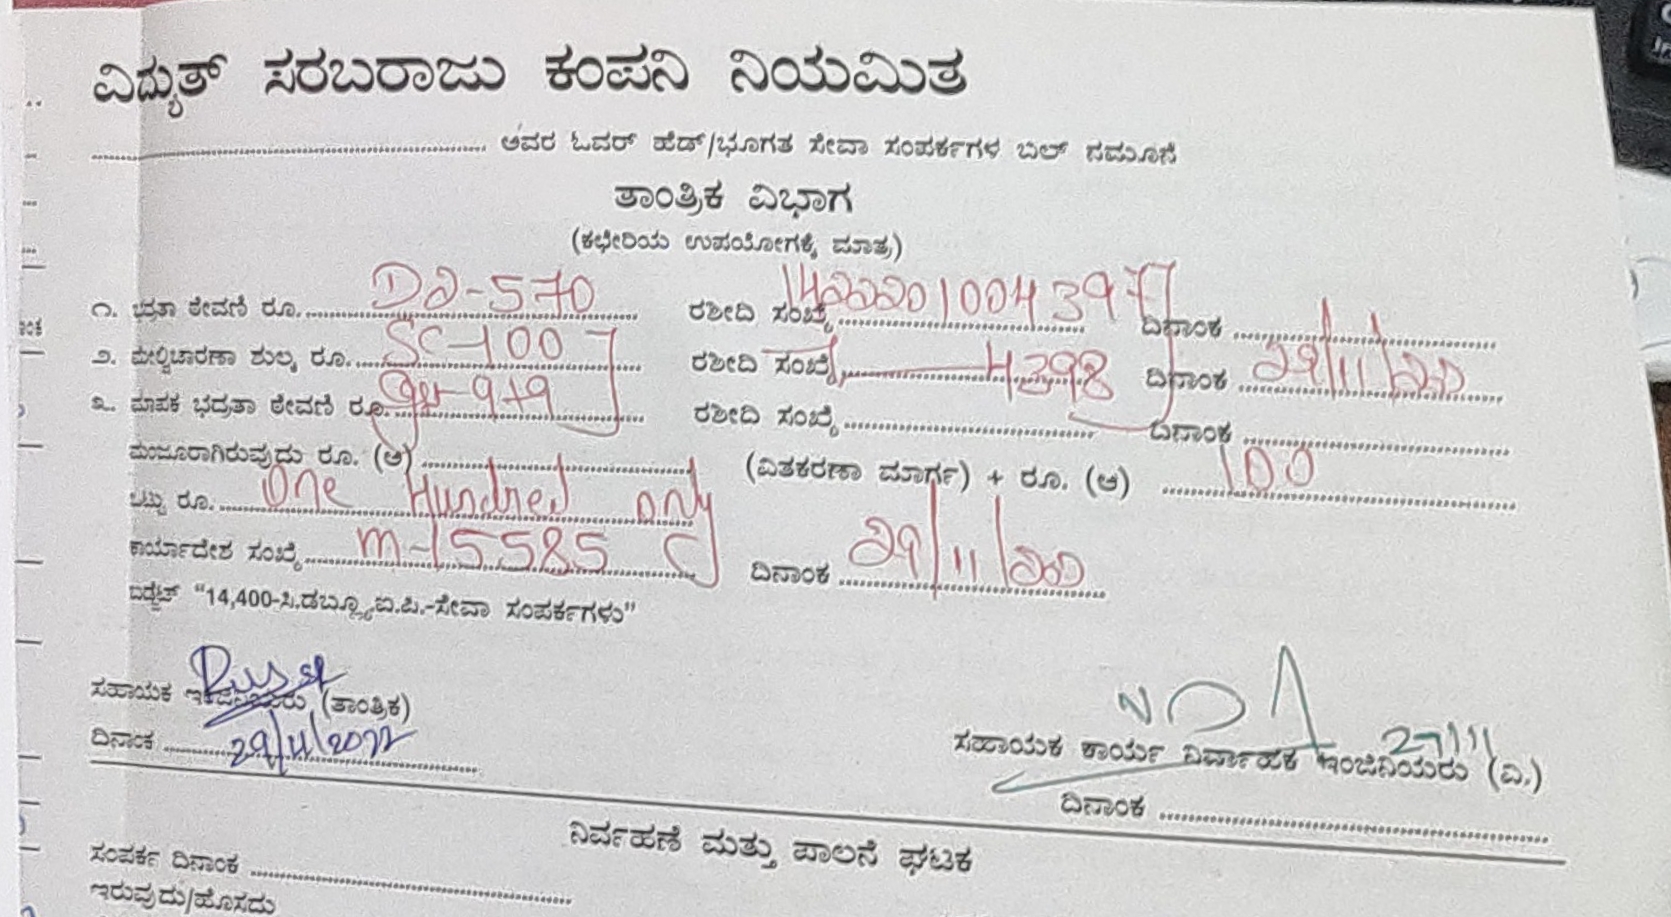 ವಿದ್ಯುತ್ ಸರಬರಾಜು ಕಂಪನಿ ನಿಯಮಿತ
ಅವರ ಓವರ್ ಹೆಡ್/ಭೂಗತ ಸೇವಾ ಸಂಪರ್ಕಗಳ ಬಿಲ್ ನಮೂನೆ
ತಾಂತ್ರಿಕ ವಿಭಾಗ
(ಕಛೇರಿಯ ಉಪಯೋಗಕ್ಕೆ ಮಾತ್ರ)
೧. ಭದ್ರತಾ ಠೇವಣಿ ರೂ. -570 ರಶೀದಿ ಸಂಖ್ಯೆ 1422201004397 ದಿನಾಂಕ
೨. ಮೇಲ್ವಿಚಾರಣಾ ಶುಲ್ಕ ರೂ. SC-100 ರಶೀದಿ ಸಂಖ್ಯೆ 4398 ದಿನಾಂಕ 29/11/
೩. ಮಾಪಕ ಭದ್ರತಾ ಠೇವಣಿ ರೂ. ರಶೀದಿ ಸಂಖ್ಯೆ ದಿನಾಂಕ
ಮಂಜೂರಾಗಿರುವುದು ರೂ. (ಅ) (ವಿತಕರಣಾ ಮಾರ್ಗ) + ರೂ. (ಆ) 100
ಒಟ್ಟು ರೂ. One Hundred only
ಕಾರ್ಯಾದೇಶ ಸಂಖ್ಯೆ m-15585 ದಿನಾಂಕ 29/11/
ಬಡ್ಜೆಟ್ "14,400-ಸಿ.ಡಬ್ಲ್ಯೂ.ಐ.ಪಿ.-ಸೇವಾ ಸಂಪರ್ಕಗಳು"
ಸಹಾಯಕ ಇಂಜಿನಿಯರು (ತಾಂತ್ರಿಕ)
ದಿನಾಂಕ 29/11/2022
ಸಹಾಯಕ ಕಾರ್ಯ ನಿರ್ವಾಹಕ ಇಂಜಿನಿಯರು (ವಿ.)
ದಿನಾಂಕ
ನಿರ್ವಹಣೆ ಮತ್ತು ಪಾಲನೆ ಘಟಕ
ಸಂಪರ್ಕ ದಿನಾಂಕ
ಇರುವುದು/ಹೊಸದು